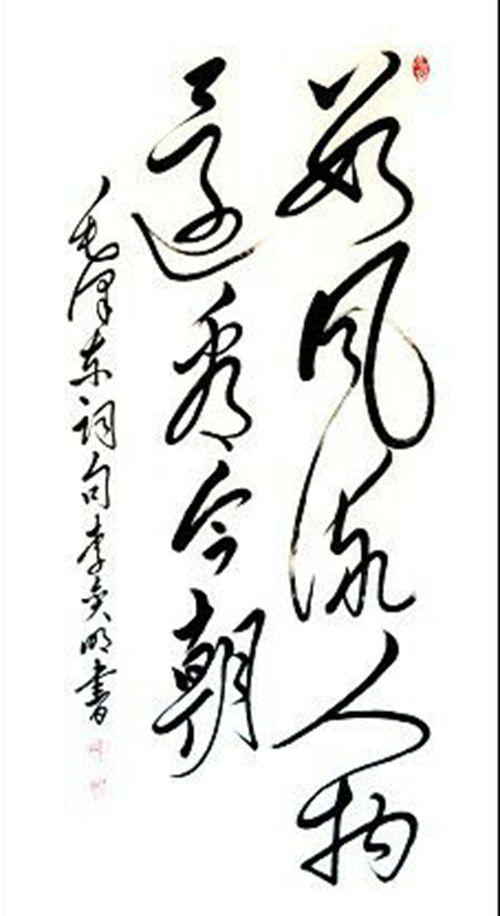 数风流人物
還看今朝
毛泽东词句李奕明書